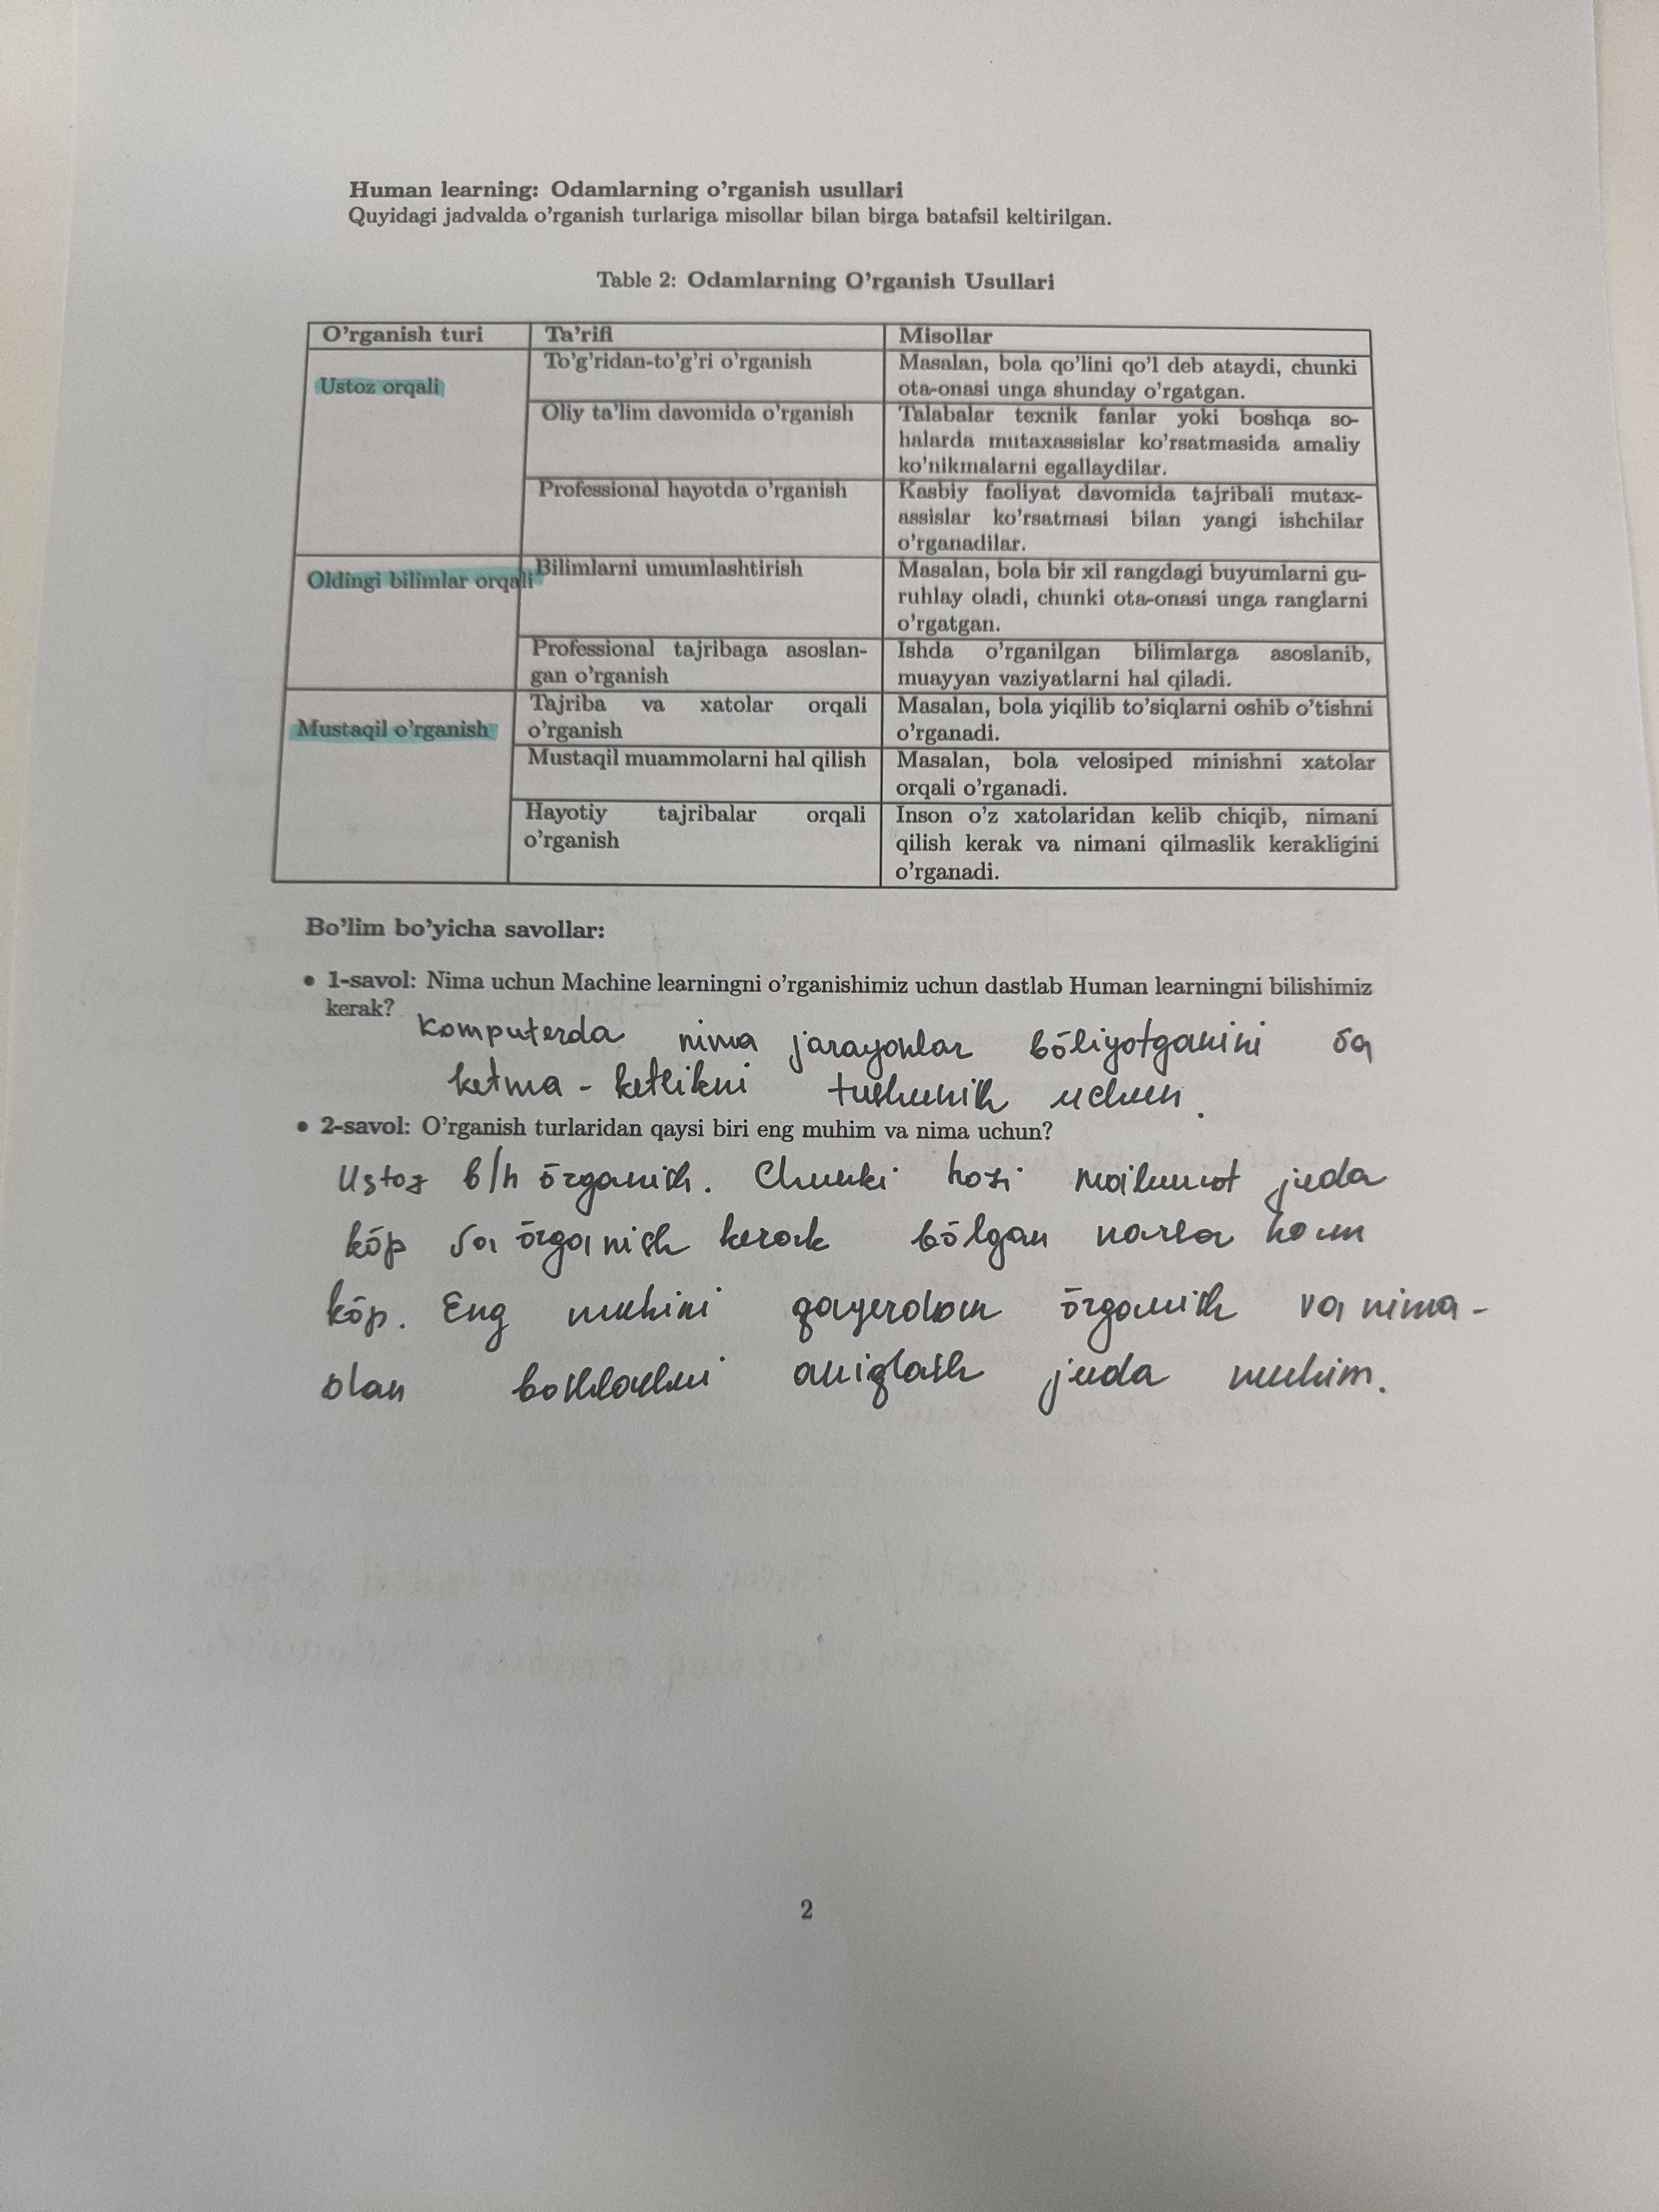 Human learning: Odamlarning o'rganish usullari
Quyidagi jadvalda o'rganish turlariga misollar bilan birga batafsil keltirilgan.
Table 2: Odamlarning O'rganish Usullari
O'rganish turi Ta'rifi Misollar
Ustoz orqali
To'g'ridan-to'g'ri o'rganish
Masalan, bola qo'lini qo'l deb ataydi, chunki
ota-onasi unga shunday o'rgatgan.
Oliy ta'lim davomida o'rganish
Talabalar texnik fanlar yoki boshqa so-
halarda mutaxassislar ko'rsatmasida amaliy
ko'nikmalarni egallaydilar.
Professional hayotda o'rganish
Kasbiy faoliyat davomida tajribali mutax-
assislar ko'rsatmasi bilan yangi ishchilar
o'rganadilar.
Oldingi bilimlar orqali
Bilimlarni umumlashtirish
Masalan, bola bir xil rangdagi buyumlarni gu-
ruhlay oladi, chunki ota-onasi unga ranglarni
o'rgatgan.
Professional tajribaga asoslan-
gan o'rganish
Ishda o'rganilgan bilimlarga asoslanib,
muayyan vaziyatlarni hal qiladi.
Mustaqil o'rganish
Tajriba va xatolar orqali
o'rganish
Masalan, bola yiqilib to'siqlarni oshib o'tishni
o'rganadi.
Mustaqil muammolarni hal qilish
Masalan, bola velosiped minishni xatolar
orqali o'rganadi.
Hayotiy tajribalar orqali
o'rganish
Inson o'z xatolaridan kelib chiqib, nimani
qilish kerak va nimani qilmaslik kerakligini
o'rganadi.
Bo'lim bo'yicha savollar:
• 1-savol: Nima uchun Machine learningni o'rganishimiz uchun dastlab Human learningni bilishimiz
kerak?
Komputerda nima jarayonlar bōliyotganini va
ketma-ketlikni tushunish uchun.
• 2-savol: O'rganish turlaridan qaysi biri eng muhim va nima uchun?
Ustoz b/n ōrganish. Chunki hozi juda
kōp va ōrganish kerak bōlgan narsa ham
kōp. Eng muhimi qayerdan ōrganish va nima-
dan boshlashni aniqlash juda muhim.
2